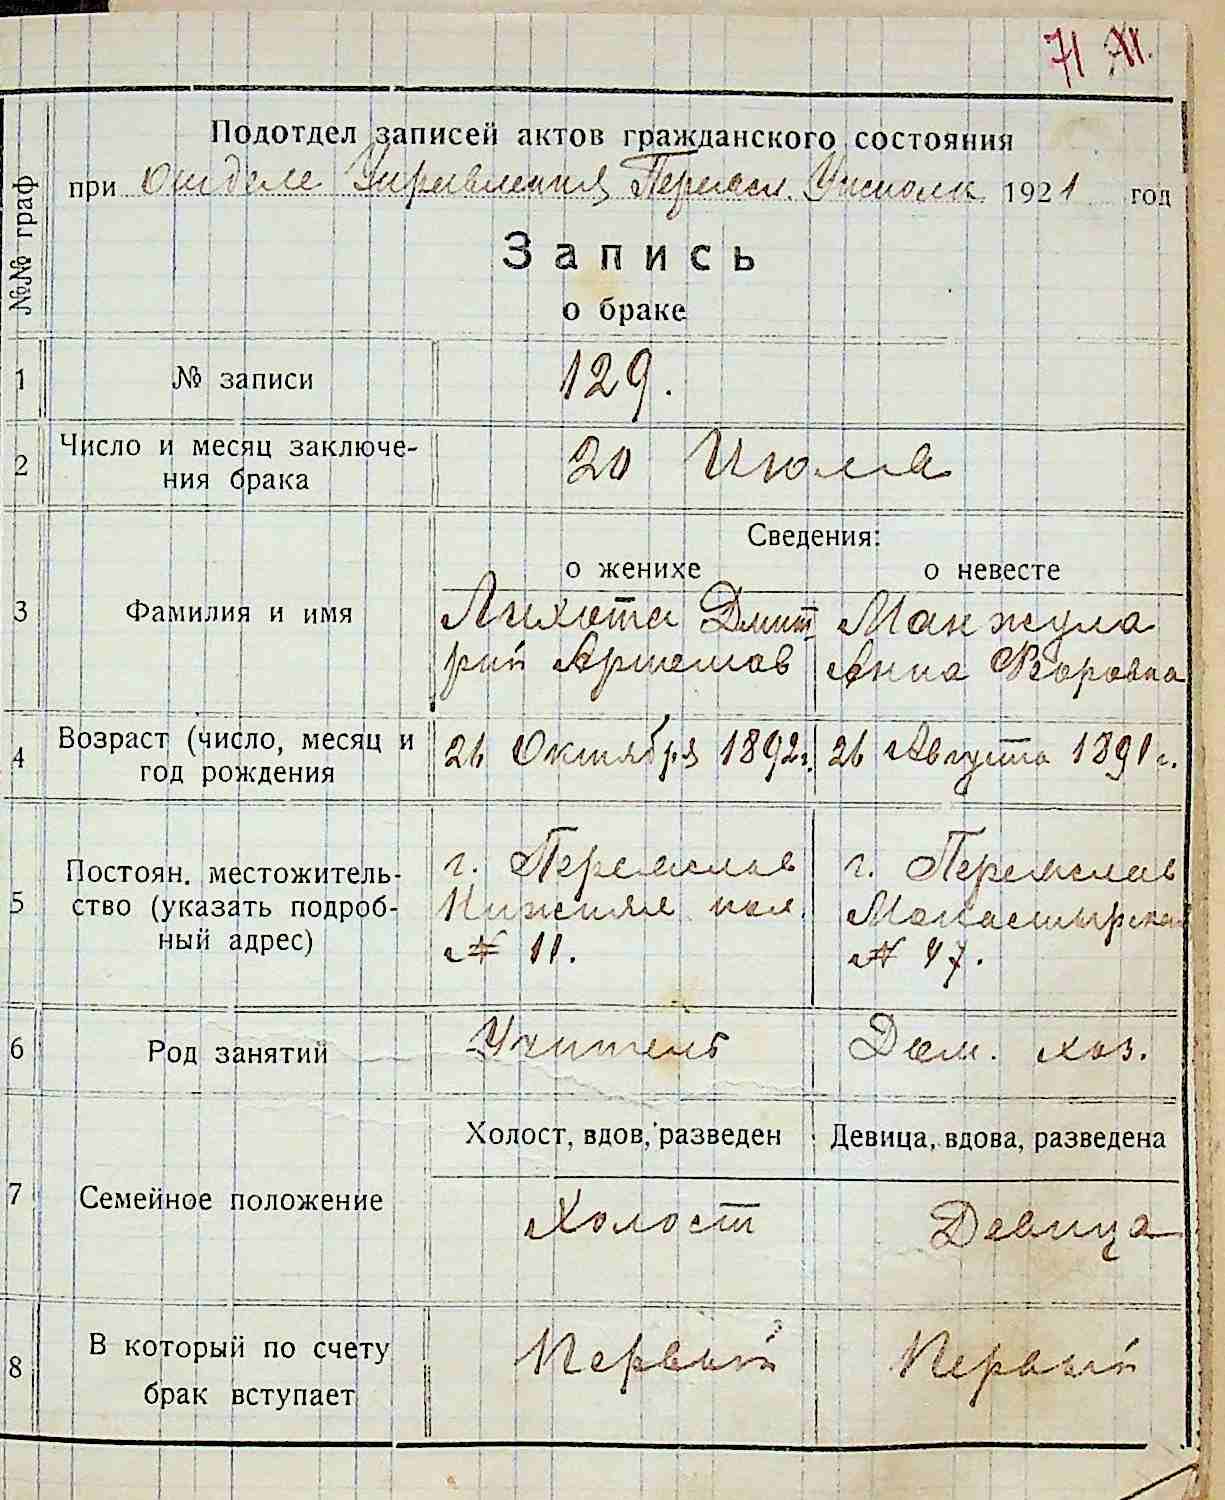 71 XI.
Подотдел записей актов гражданского состояния
при отделе Управления Переясл. Уисполк. 1921 год
№№ граф
Запись
о браке
1 № записи 129.
2 Число и месяц заключе-
ния брака 20 Июля
Сведения:
о женихе о невесте
3 Фамилия и имя Лихота Дмит- Манжула
рий Артемов Анна
4 Возраст (число, месяц и
год рождения 26 Октября 1892 г. 26 Августа 1891 г.
5 Постоян. местожитель-
ство (указать подроб-
ный адрес)
г. Переяслав г. Переяслав
Нижняя Монастырская
№ 11. № 47.
6 Род занятий Учитель Дом. хоз.
Холост, вдов, разведен Девица, вдова, разведена
7 Семейное положение Холост Девица
8 В который по счету
брак вступает Первый Первый